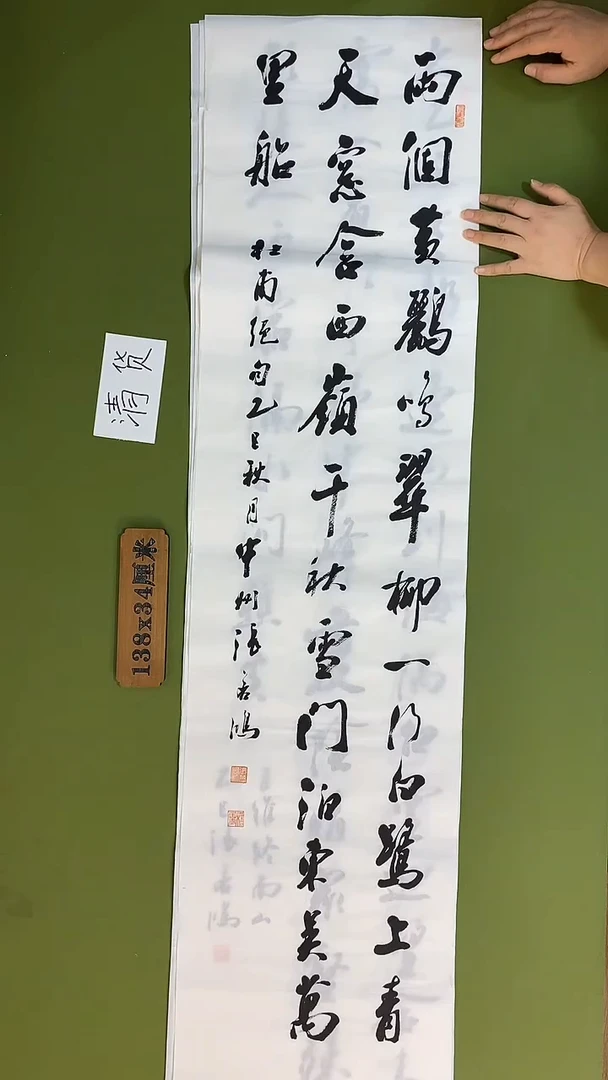 兩個黃鸝鳴翠柳一行白鷺上青
天窓含西嶺千秋雪門泊東吴萬
里船
杜甫絕句乙巳秋月中州張善鴻
清货
138x34厘米